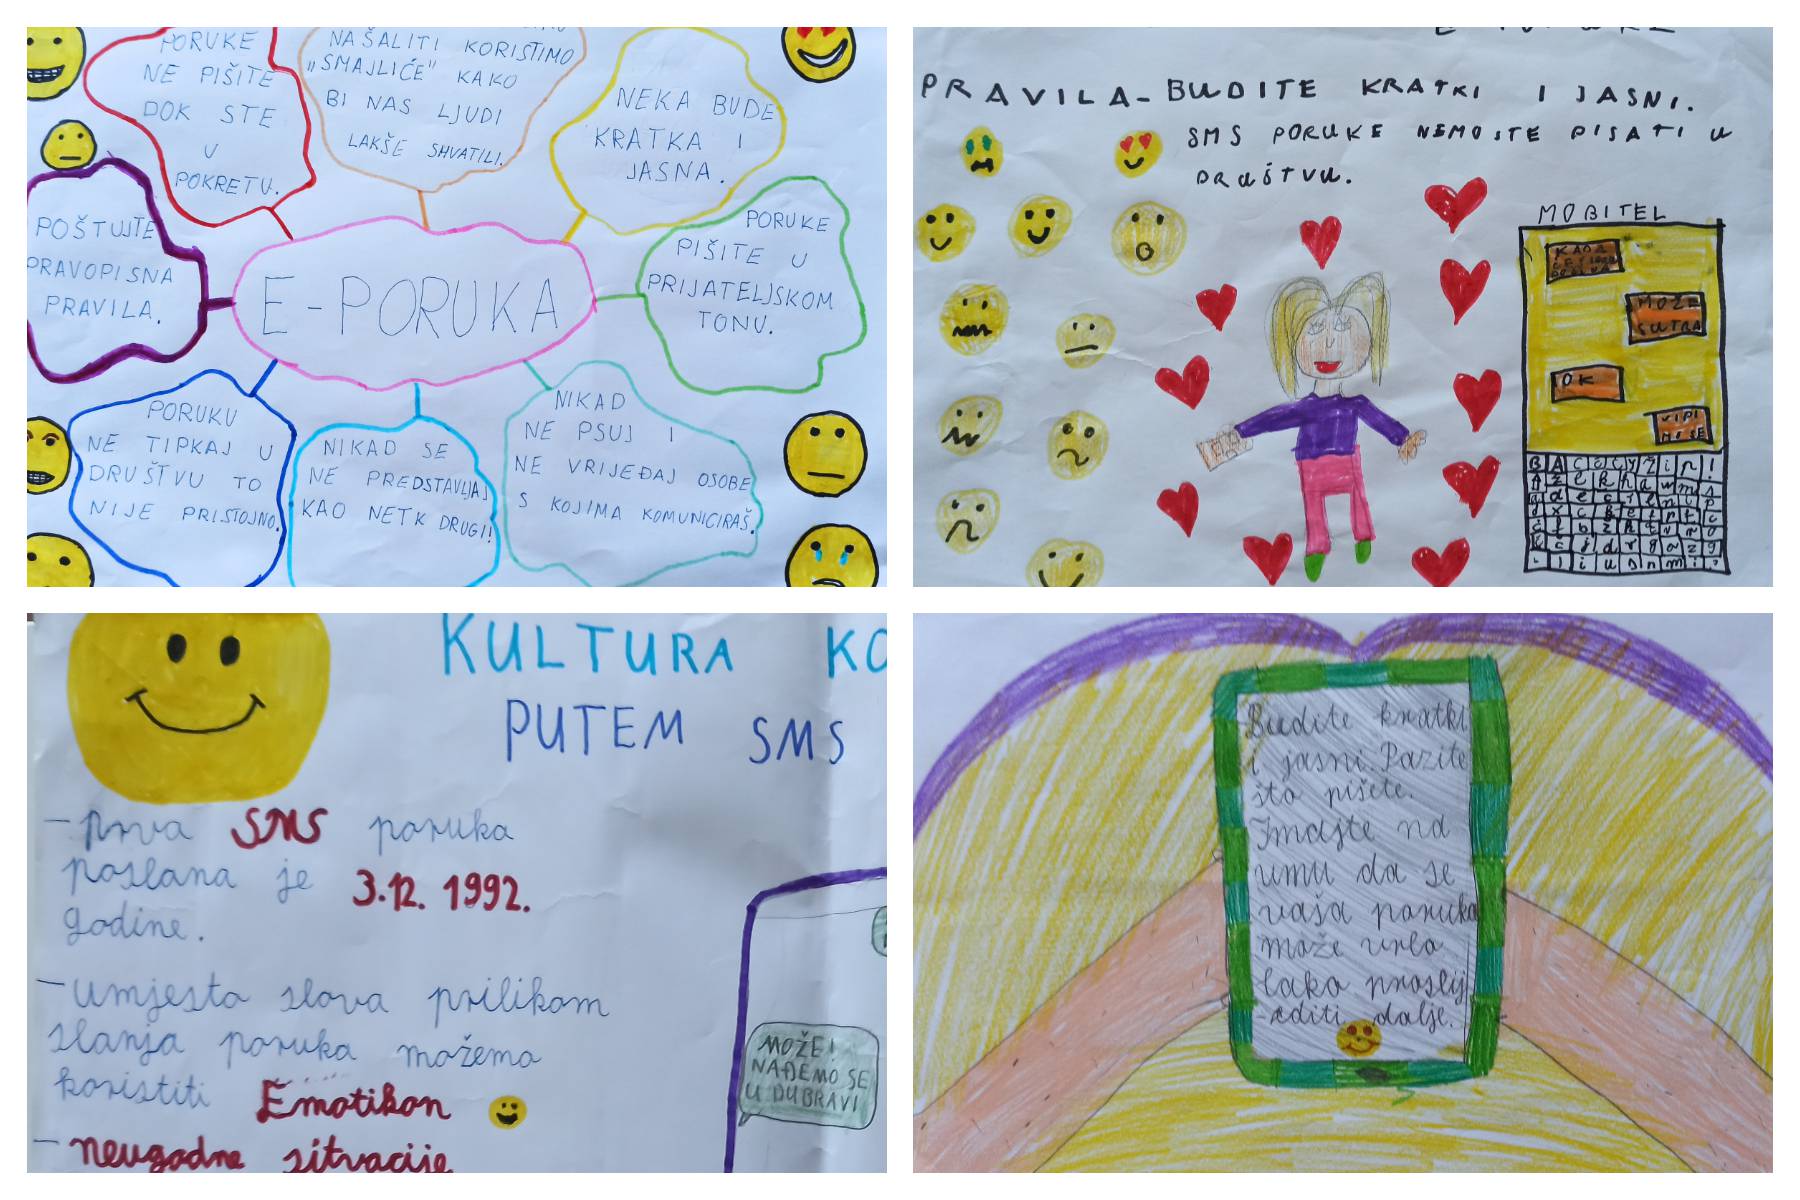 PORUKE
NE PIŠITE
DOK STE
U
POKRETU.
NAŠALITI KORISTIMO
„SMAJLIĆE" KAKO
BI NAS LJUDI
LAKŠE SHVATILI.
NEKA BUDE
KRATKA I
JASNA.
POŠTUJTE
PRAVOPISNA
PRAVILA.
E-PORUKA
PORUKE
PIŠITE U
PRIJATELJSKOM
TONU.
PORUKU
NE TIPKAJ U
DRUŠTVU TO
NIJE PRISTOJNO.
NIKAD SE
NE PREDSTAVLJAJ
KAO NETK DRUGI!
NIKAD
NE PSUJ I
NE VRIJEĐAJ OSOBE
S KOJIMA KOMUNICIRAŠ.
PRAVILA-BUDITE KRATKI I JASNI.
SMS PORUKE NEMOJTE PISATI U
DRUŠTVU.
MOBITEL
KADA
MOŽE
SUTRA
OK
VIDI
MO SE
KULTURA KO
PUTEM SMS
-prva SMS poruka
poslana je 3.12. 1992.
godine.
-umjesto slova prilikom
slanja poruka možemo
koristiti Emotikon
-neugodne situacije
MOŽE!
NAĐEMO SE
U DUBRAVI
Budite kratki
i jasni. Pazite
što pišete.
Imajte na
umu da se
vaša poruka
može vrlo
lako proslij
-editi dalje.